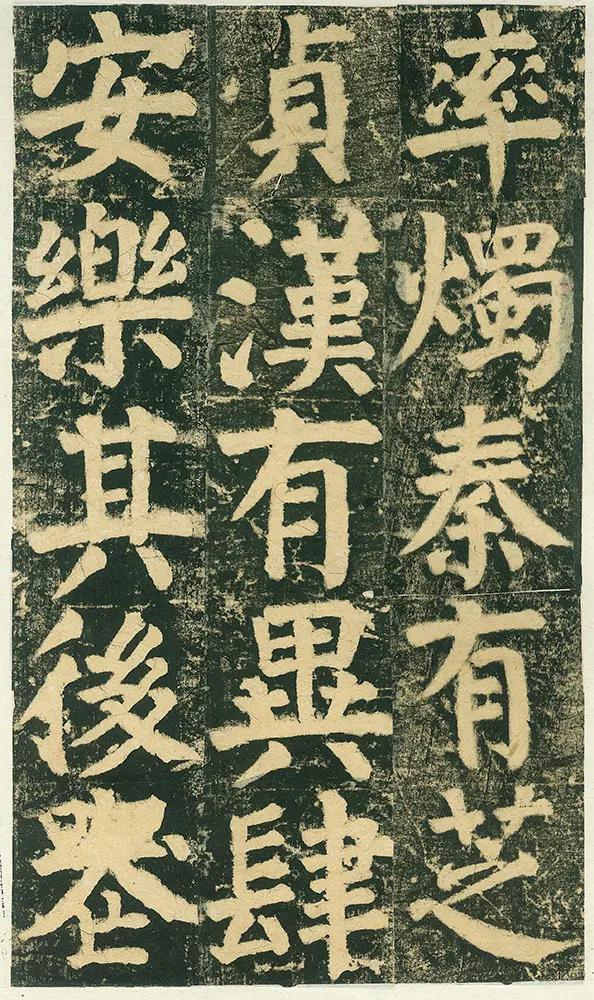 率燭秦有芝
貞漢有異肆
安樂其後喪